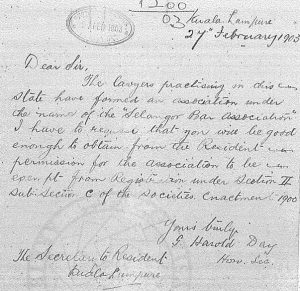 1500
03
Kuala Lumpure
27th February 1903
Dear Sir,
The lawyers practising in this
State have formed an association under
the name of the "Selangor Bar Association"
I have to request that you will be good
enough to obtain from the Resident
permission for the association to be
exempt from Registration under Section II
Sub-Section C of the Societies Enactment 1900
Yours truly,
Harold Day
Hon. Sec.
The Secretary to Resident
Kuala Lumpure